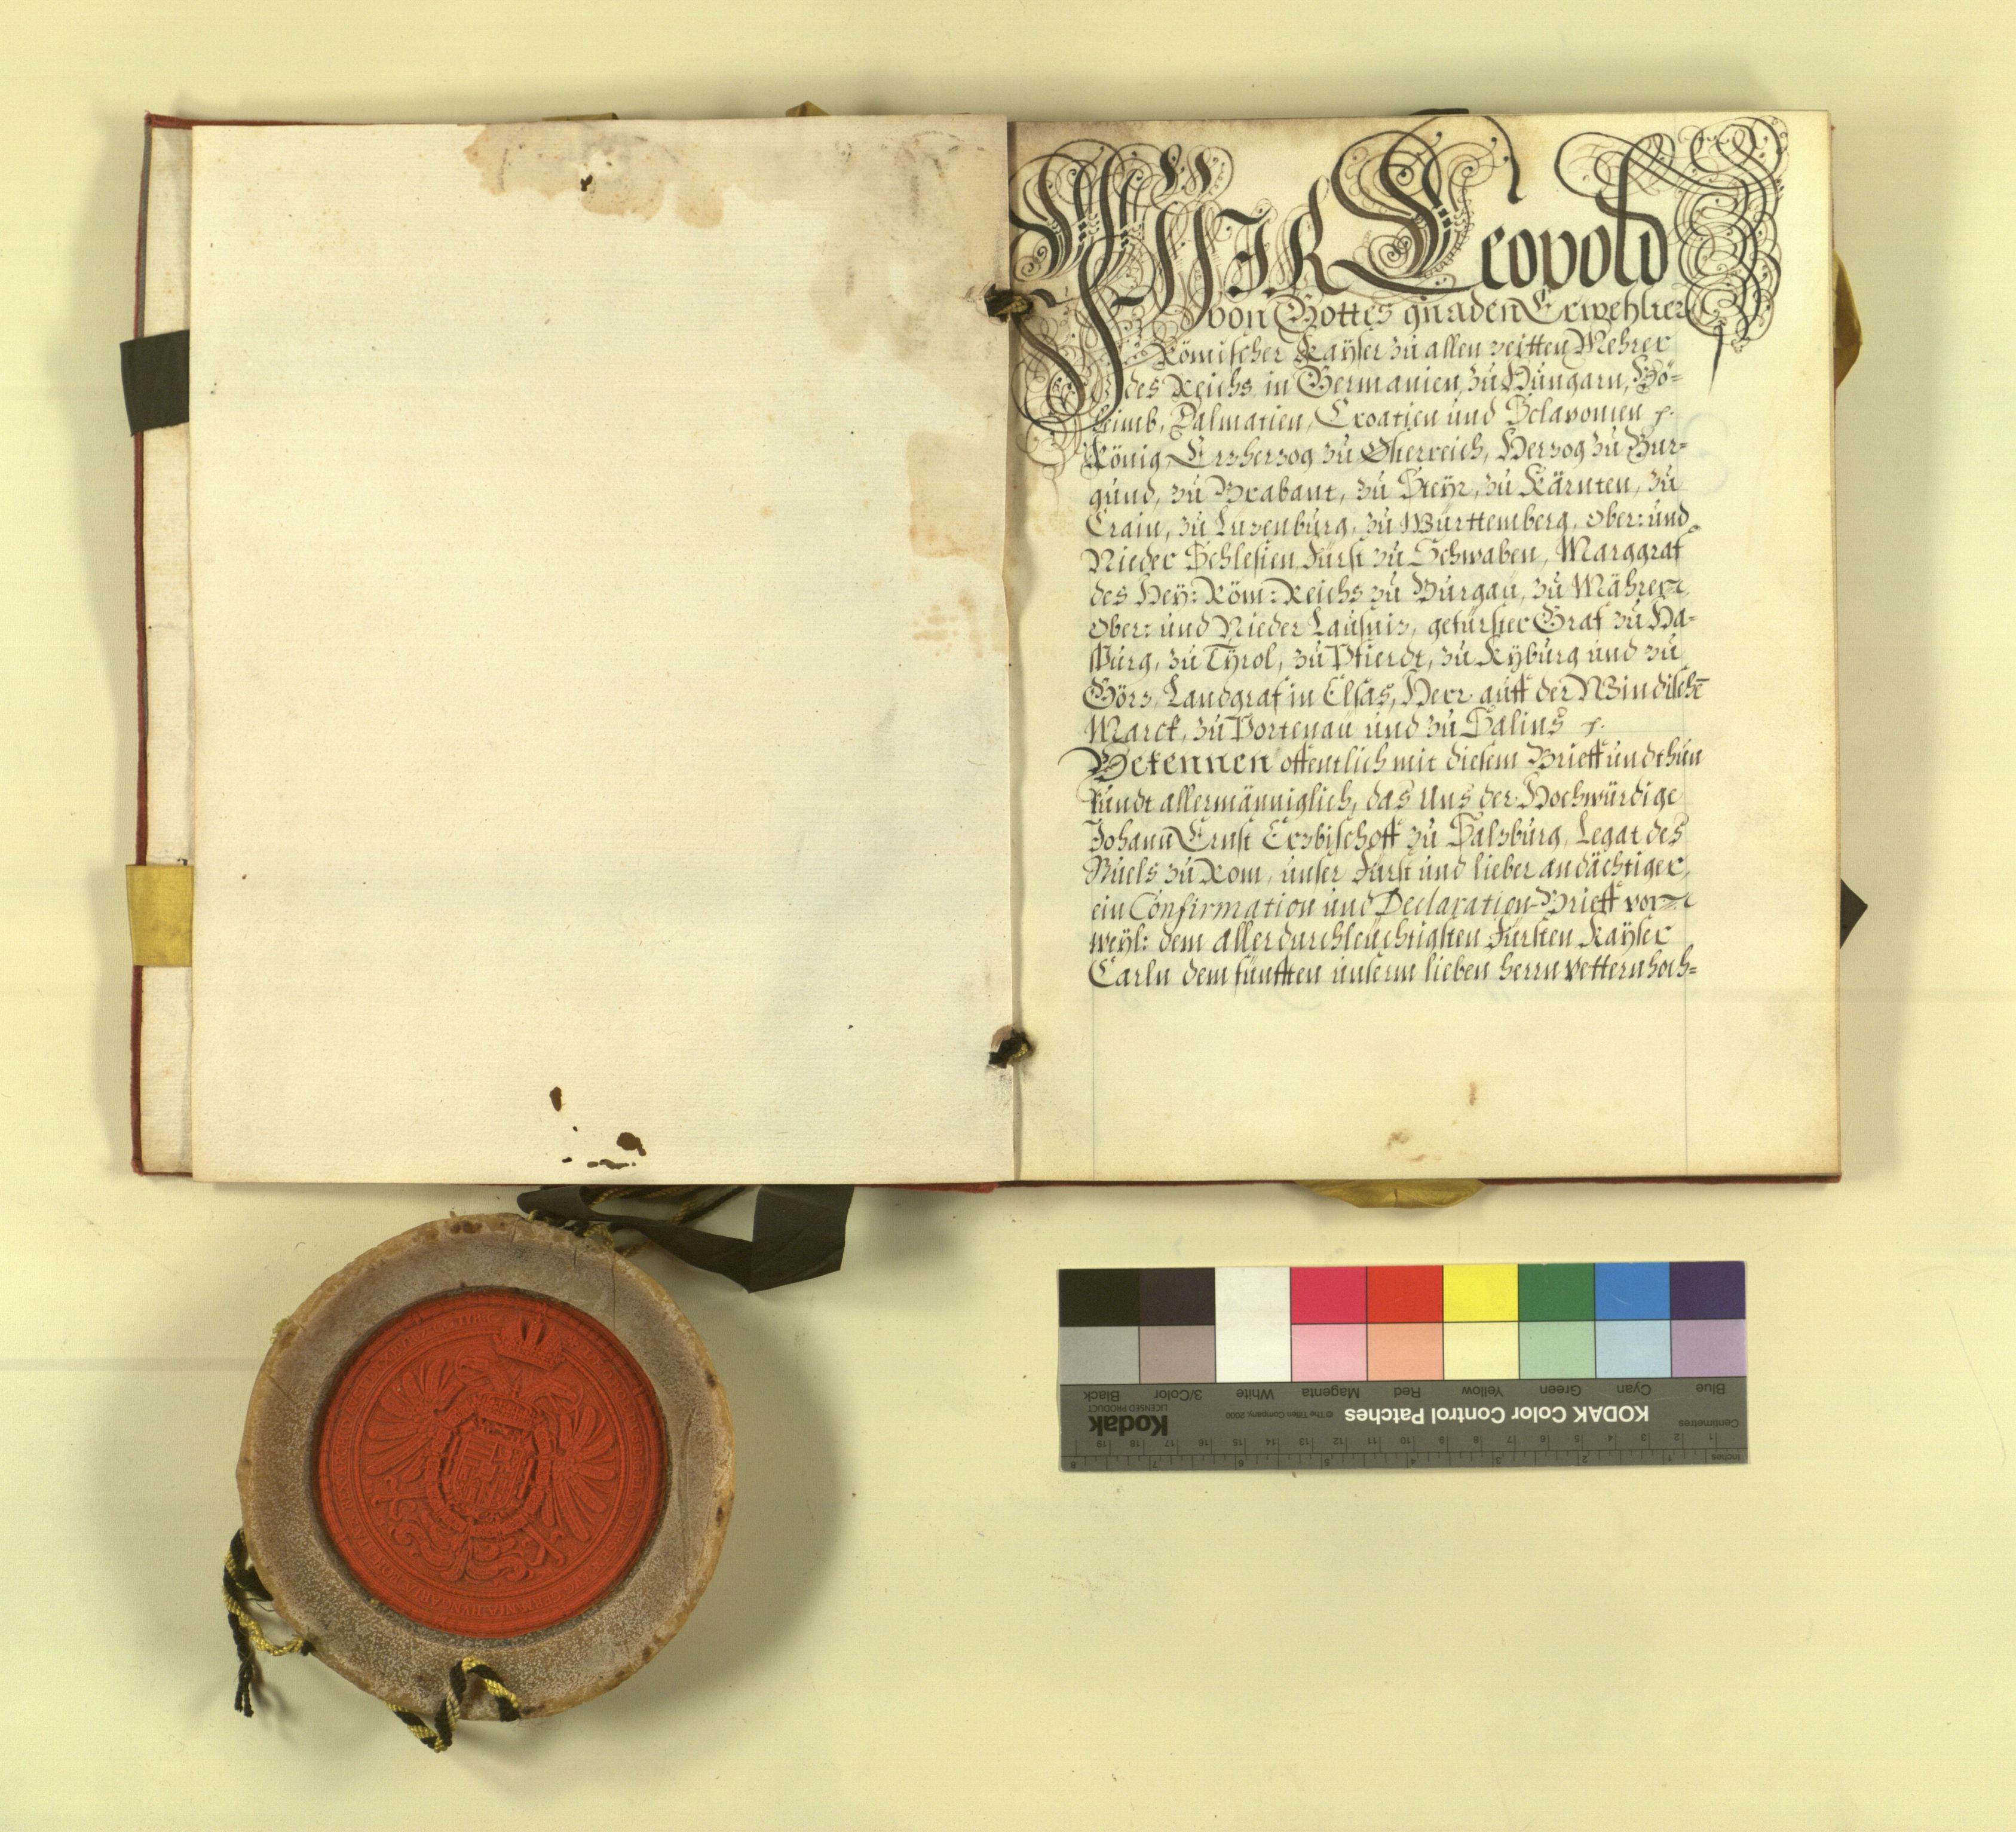 Wür Leopold
von Gottes gnaden Erwehlter
Römischer Kaÿser zu allen zeitten Mehrer
des Reichs, in Germanien, zu Hungarn, Bö-
heimb, Dalmatien, Croatien und Sclavonien p.
König, Erzherzog zu Österreich, Herzog zu Bur-
gund, zu Brabant, zu Steÿr, zu Kärnten, zu
Crain, zu Luzenburg, zu Württemberg, ober: und
Nieder Schlesien, Fürst zu Schwaben, Marggraf
des Heÿ: Röm: Reichs zu Burgau, zu Mähren,
Ober: und Nieder Lausniz, gefürster Graf zu Ha-
spurg, zu Tÿrol, zu Pfierdt, zu Kÿburg und zu
Görz, Landgraf in Elsas, Herr auff der Windische
Marck, zu Portenau und zu Salins p.
Bekennen offentlich mit diesem Brieff und thun
kundt allermänniglich, das Uns der Hochwürdige
Johann Ernst Erzbischoff zu Salzburg, Legat des
Stuels zu Rom, unser Fürst und lieber andächtiger,
ein Confirmation und Declaration-Brieff von
weÿl: dem allerdurchleüchtigsten Fürsten Kaÿser
Carln dem fünfften unserm lieben herrn vettern hoch-
Blue Cyan Green Yellow Red Magenta White 3/Color Black
KODAK Color Control Patches
© The Tiffen Company, 2000
Kodak
LICENSED PRODUCT
Centimetres
1 2 3 4 5 6 7 8 9 10 11 12 13 14 15 16 17 18 19
Inches
1 2 3 4 5 6 7 8